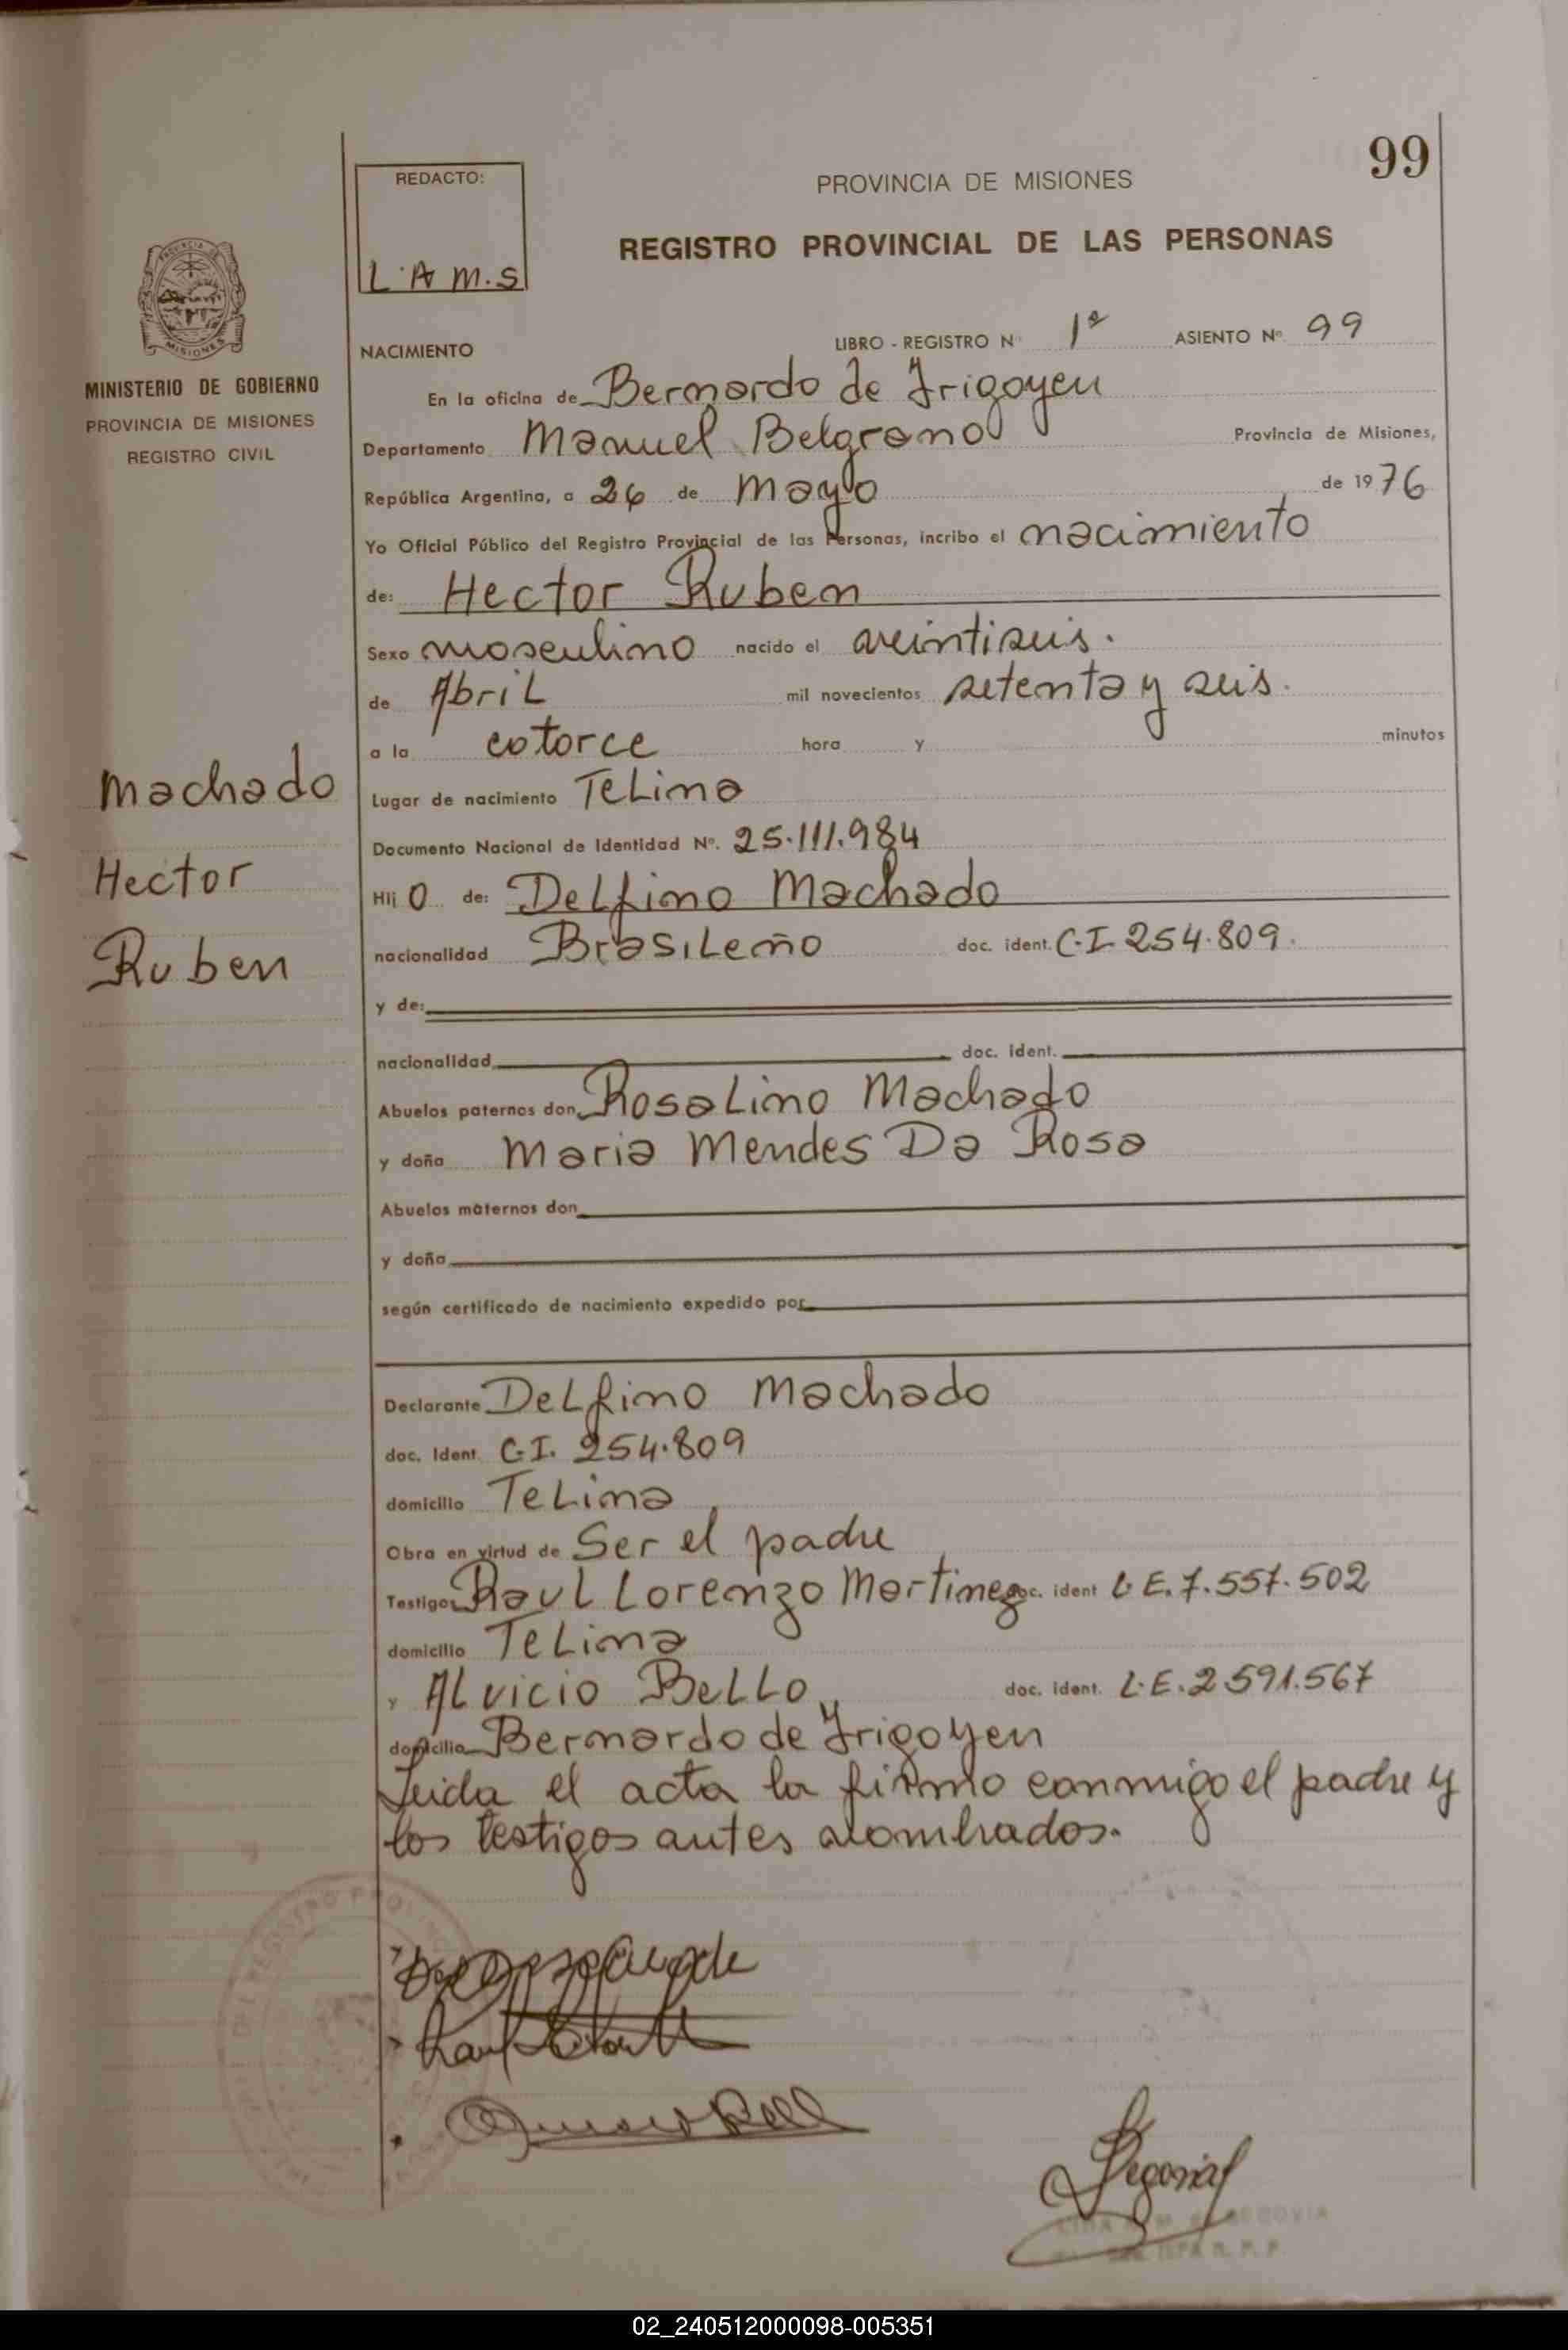 99
REDACTO:
L.A M.S
PROVINCIA DE MISIONES
REGISTRO PROVINCIAL DE LAS PERSONAS
MISIONES
MINISTERIO DE GOBIERNO
PROVINCIA DE MISIONES
REGISTRO CIVIL
NACIMIENTO LIBRO - REGISTRO Nº 1º ASIENTO Nº 99
En la oficina de Bernardo de Irigoyen
Departamento Manuel Belgrano Provincia de Misiones,
República Argentina, a 26 de Mayo de 1976
Yo Oficial Público del Registro Provincial de las Personas, incribo el nacimiento
de: Hector Ruben
Sexo masculino nacido el veintiseis.
de Abril mil novecientos setenta y seis.
a la catorce hora y minutos
Machado
Hector
Ruben
Lugar de nacimiento Telina
Documento Nacional de Identidad Nº. 25.111.984
Hij o de: Delfino Machado
nacionalidad Brasileño doc. ident. C.I. 254.809.
y de:
nacionalidad doc. ident.
Abuelos paternos don Rosalino Machado
y doña Maria Mendes Da Rosa
Abuelos maternos don
y doña
según certificado de nacimiento expedido por
Declarante Delfino Machado
doc. Ident. C.I. 254.809
domicilio Telina
Obra en virtud de Ser el padre
Testigos Raul Lorenzo Martinez doc. ident L.E. 7.557.502
domicilio Telina
y Alvicio Bello, doc. ident. L.E. 2.591.567
domicilio Bernardo de Irigoyen
Leida el acta la firmo conmigo el padre y
los testigos antes nombrados.
Segovia
02_240512000098-005351